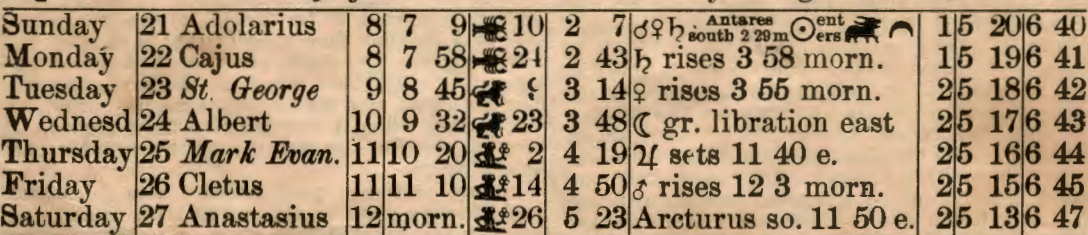 Sunday 21 Adolarius 8 7 9 10 2 7 ☌♀♄ Antares south 2 29m ☉enters 1 5 20 6 40
Monday 22 Cajus 8 7 58 24 2 43 ♄ rises 3 58 morn. 1 5 19 6 41
Tuesday 23 St. George 9 8 45 3 14 ♀ rises 3 55 morn. 2 5 18 6 42
Wednesd 24 Albert 10 9 32 23 3 48 ☾ gr. libration east 2 5 17 6 43
Thursday 25 Mark Evan. 11 10 20 2 4 19 ♃ sets 11 40 e. 2 5 16 6 44
Friday 26 Cletus 11 11 10 14 4 50 ♂ rises 12 3 morn. 2 5 15 6 45
Saturday 27 Anastasius 12 morn. 26 5 23 Arcturus so. 11 50 e. 2 5 13 6 47